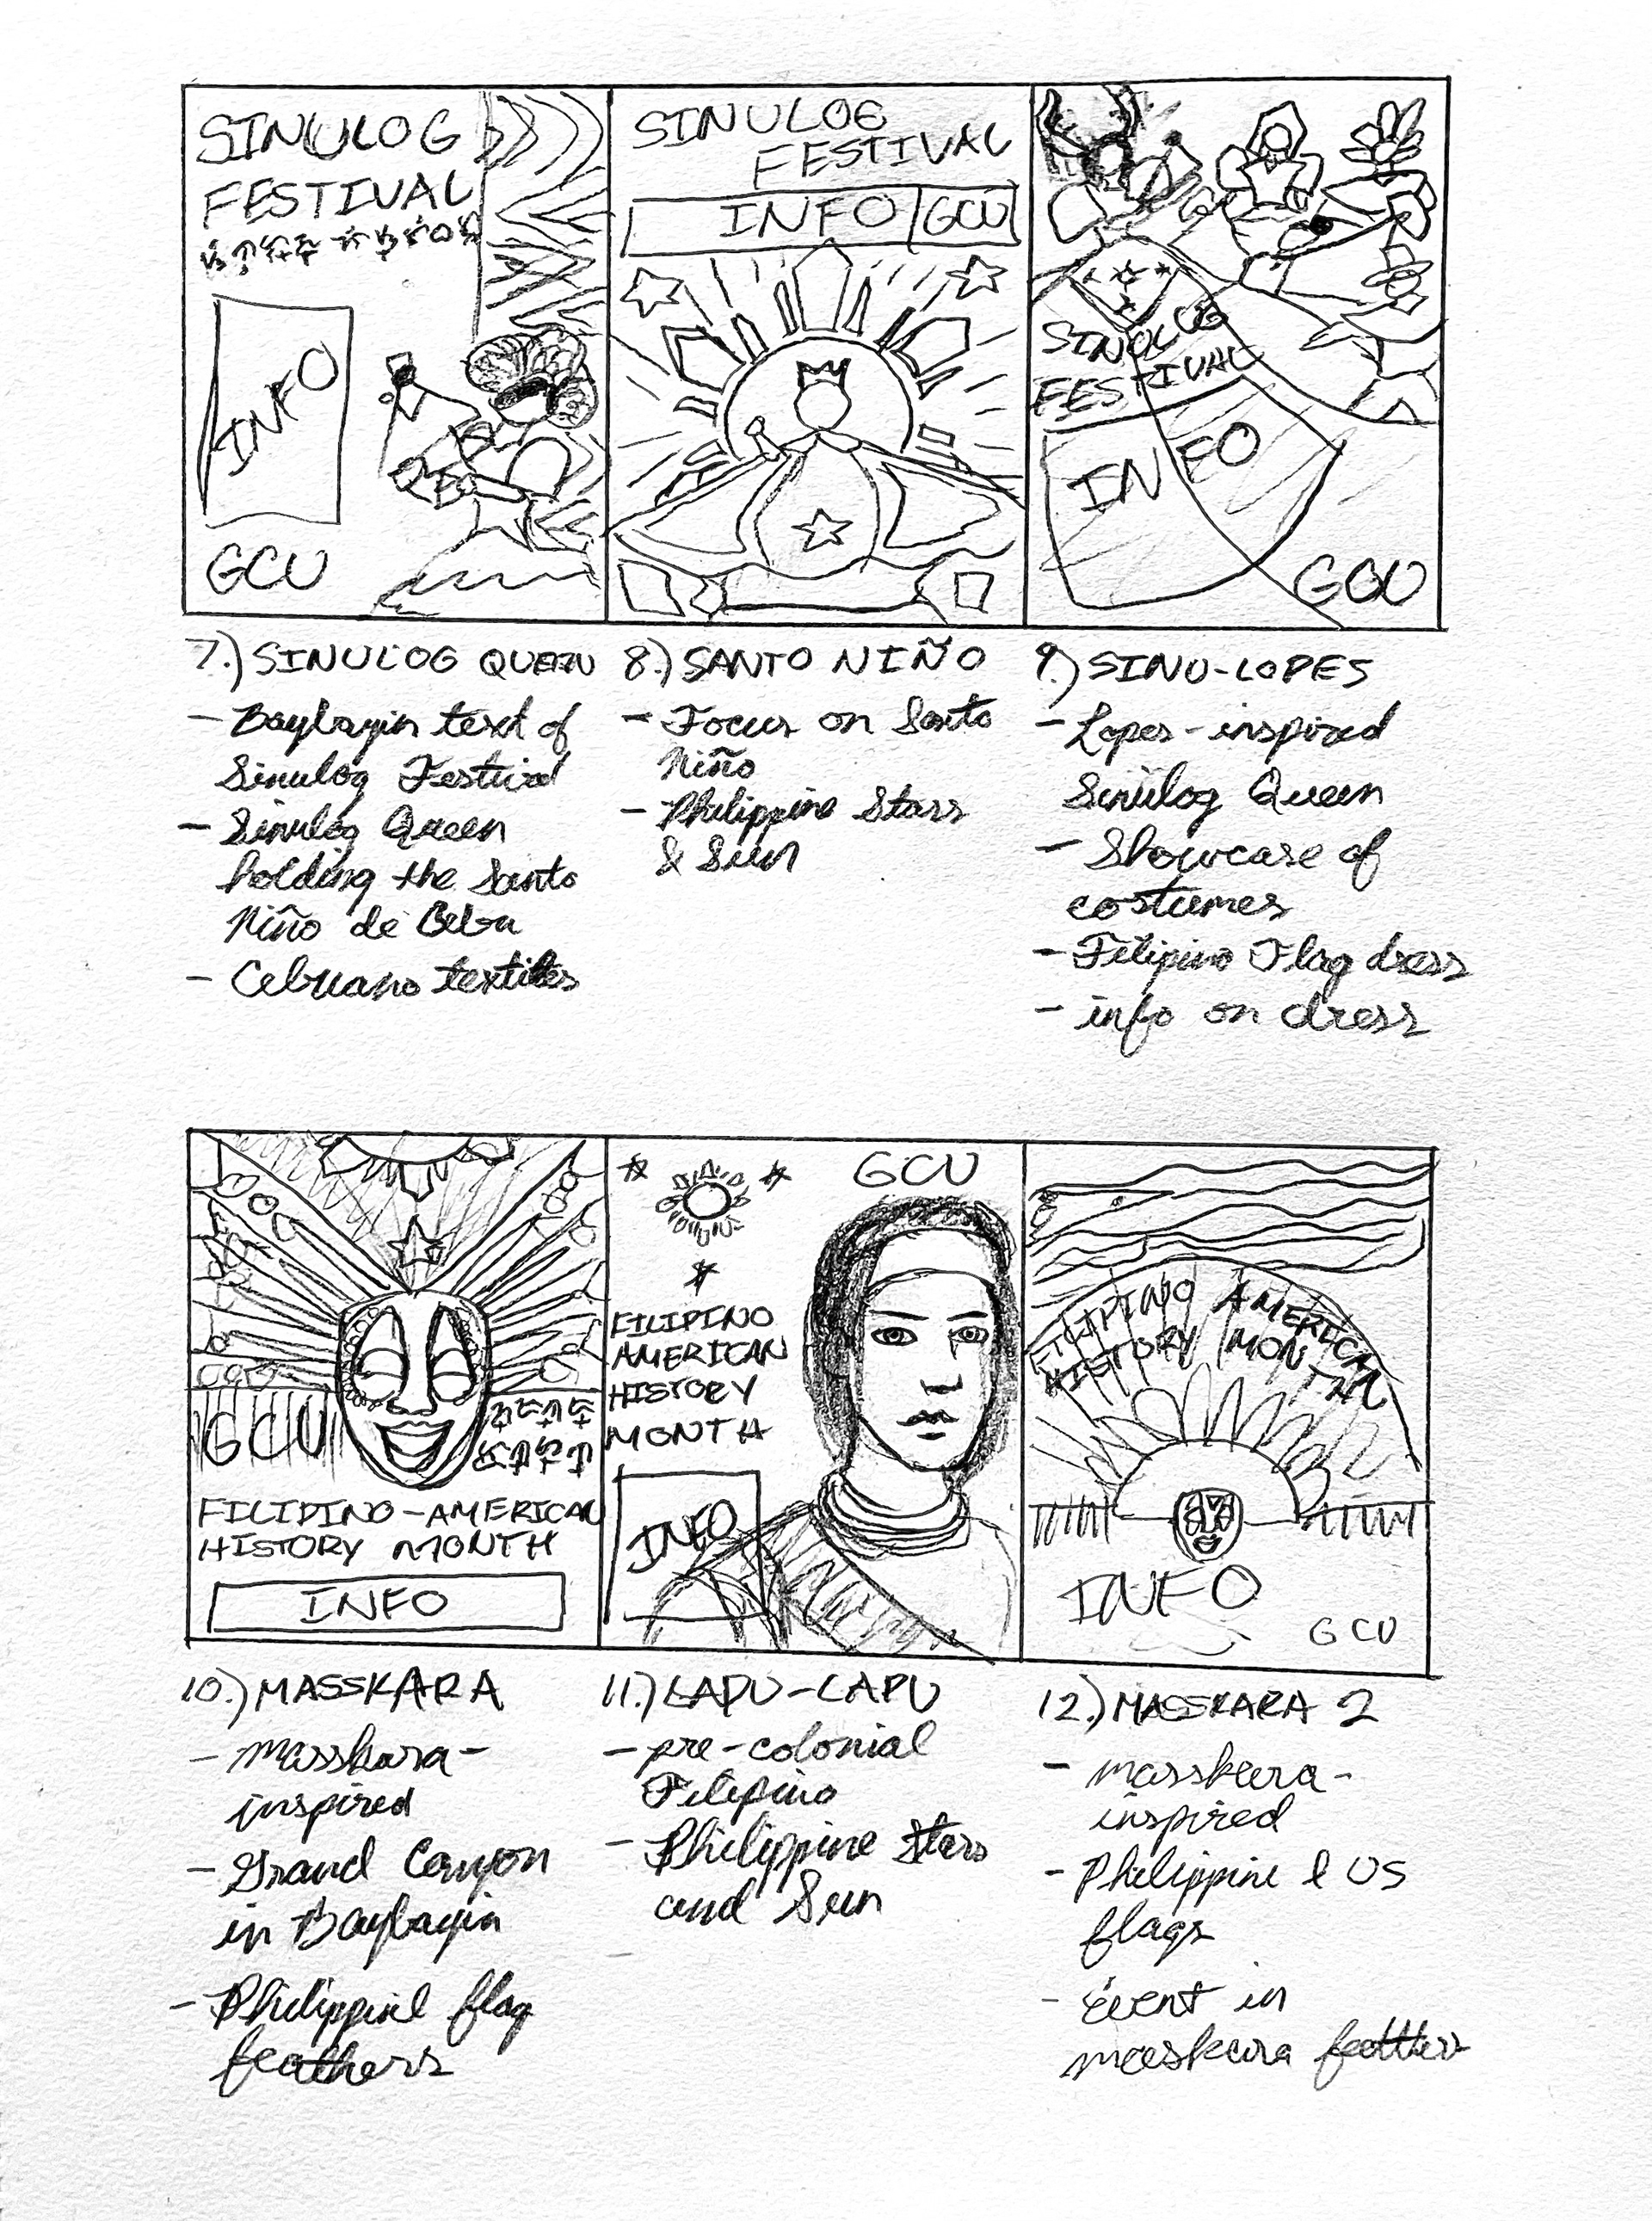 SINULOG
FESTIVAL
INFO
GCU
SINULOG
FESTIVAL
INFO GCU
SINULOG
FESTIVAL
INFO
GCU
7.) SINULOG QUEEN
- Baybayin text of
Sinulog Festival
- Sinulog Queen
holding the Santo
Niño de Cebu
- Cebuano textiles
8.) SANTO NIÑO
- Focus on Santo
Niño
- Philippine Stars
& Sun
9.) SINU-LOPES
- Lopes-inspired
Sinulog Queen
- Showcase of
costumes
- Filipino Flag dress
- info on dress
GCU
FILIPINO-AMERICAN
HISTORY MONTH
INFO
GCU
FILIPINO
AMERICAN
HISTORY
MONTH
INFO
FILIPINO AMERICAN
HISTORY MONTH
INFO
GCU
10.) MASSKARA
- masskara-
inspired
- Grand Canyon
in Baybayin
- Philippine flag
feathers
11.) LAPU-LAPU
- pre-colonial
Filipino
- Philippine Stars
and Sun
12.) MASSKARA 2
- masskara-
inspired
- Philippine & US
flags
- event in
maskara feathers